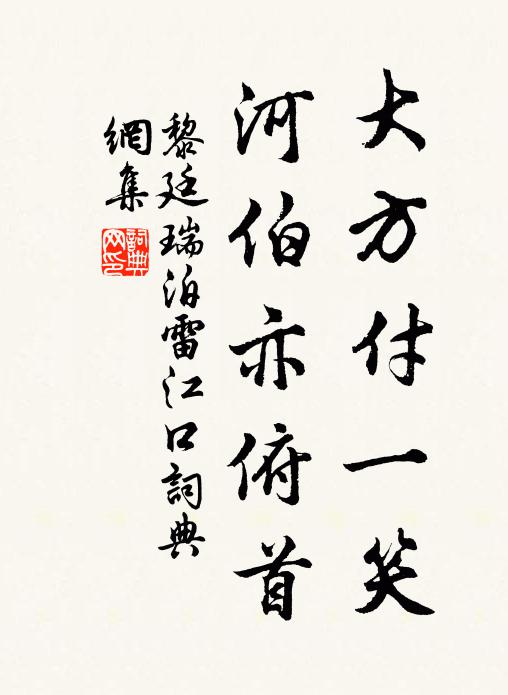 大方付一笑
河伯亦俯首
黎廷瑞泊雷江口詞典
網集
詞典
网印